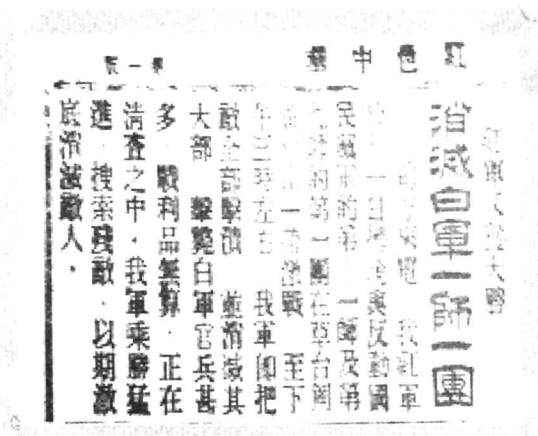 紅色中華
第一版
紅軍又獲大勝
消滅白軍一師一團
來電 我紅軍
一日 與反動國
民黨軍的第十一師及第
九師的第一團在草台岡
一帶激戰 至下
午三時左右 我軍即把
敵全部擊潰 並消滅其
大部 擊斃白軍官兵甚
多 戰利品無算 正在
清查之中，我軍乘勝猛
進 搜索殘敵，以期澈
底消滅敵人。